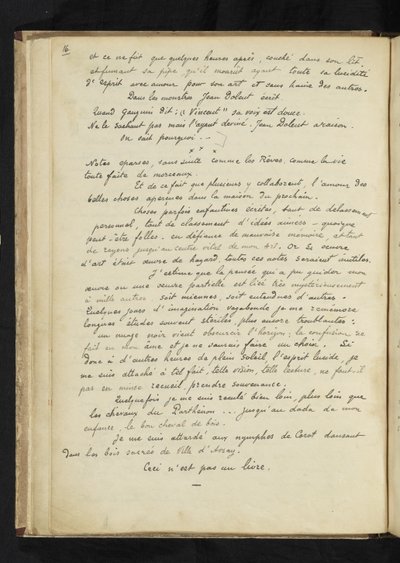 16
et ce ne fut que quelques heures après, couché dans son lit
et fumant sa pipe qu'il mourût ayant toute sa lucidité
d'esprit avec amour pour son art et sans haine des autres.
Dans les monstres Jean Dolent écrit.
Quand Gauguin dit: "Vincent" sa voix est douce.
Ne le sachant pas mais l'ayant deviné. Jean Dolent a raison.
On sait pourquoi ...
x x x
Notes éparses, sans suite comme les Rêves comme la vie
toute faite de morceaux.
Et de ce fait que plusieurs y collaborent, l'amour des
belles choses aperçues dans la maison du prochain.
Choses parfois enfantines écrites, tant de délassement
personnel, tant de classement d'idées aimées — quoique
peut-être folles — en défiance de mauvaise mémoire, et tant
de rayons jusqu'au centre vital de mon art. Or si oeuvre
d'art était oeuvre de hasard, toutes ces notes seraient inutiles.
J'estime que la pensée qui a pu guider mon
oeuvre ou une oeuvre partielle est liée très mystérieusement
à mille autres, soit miennes, soit entendues d'autres.
Quelques jours d'imagination vagabonde je me remémore
longues études souvent stériles plus encore troublantes:
un nuage noir vient obscurcir l'horizon; la confusion se
fait en mon âme et je ne saurais faire un choix. Si
donc à d'autres heures de plein soleil l'esprit lucide, je
me suis attaché à tel fait, telle vision, telle lecture, ne faut-il
pas en mince recueil, prendre souvenance.
Quelquefois je me suis reculé bien loin, plus loin que
les chevaux du Parthénon ... jusqu'au dada de mon
enfance, le bon cheval de bois.
Je me suis attardé aux nymphes de Corot dansant
dans les bois sacrés de Ville d'Avray.
Ceci n'est pas un livre.